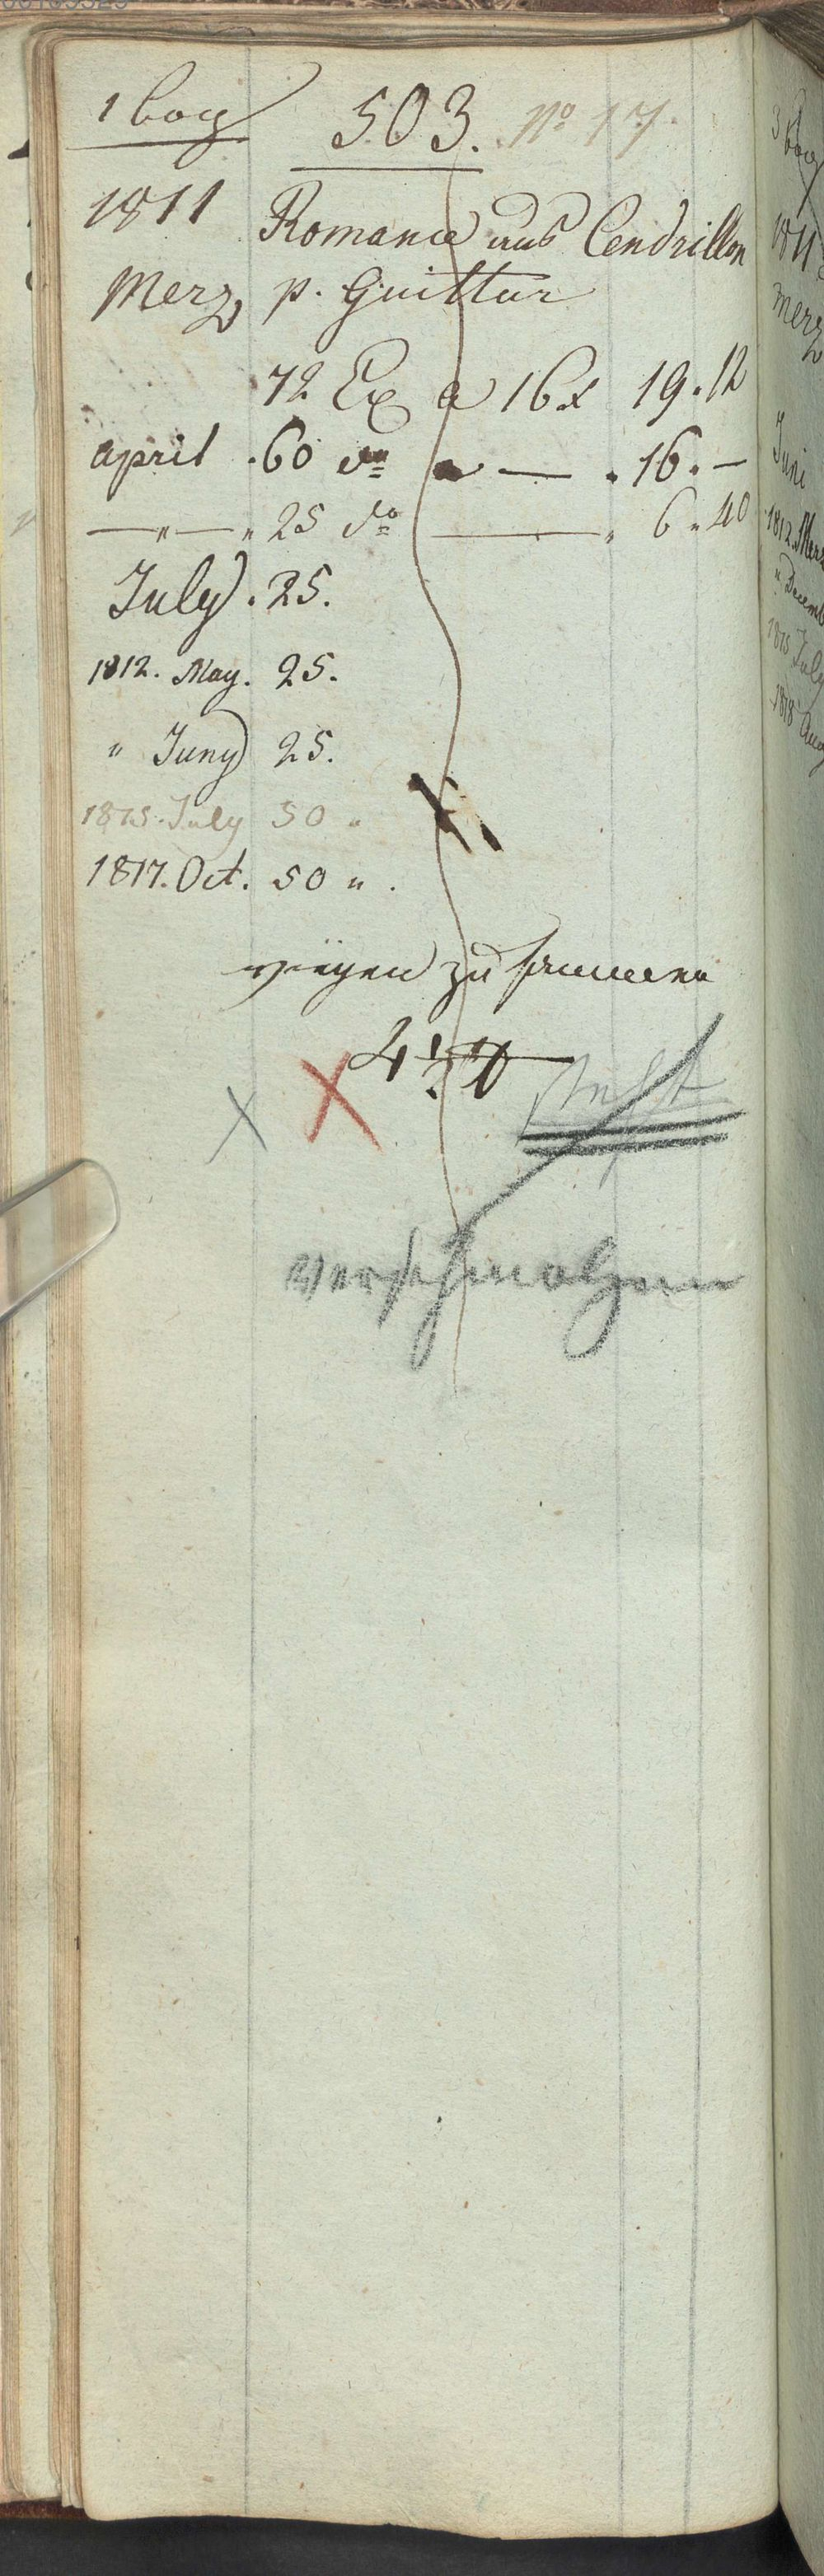 1 bog 503. No 17.
1811 Romance aus Cendrillon
Merz p. Guittar
72 Ex a 16x 19.12
april . 60 do a — . 16. —
— " — " 25 do — " 6 " 40
July . 25.
1812. May. 25.
" Juny 25.
1815. July 50 "
1817. Oct. 50 " .
wiegen zusammen
4½ ℔
steht
verschmolzen
3 bog
1811
Merz
Juni
1812. Merz
" Decemb
1815 July
1818 Aug